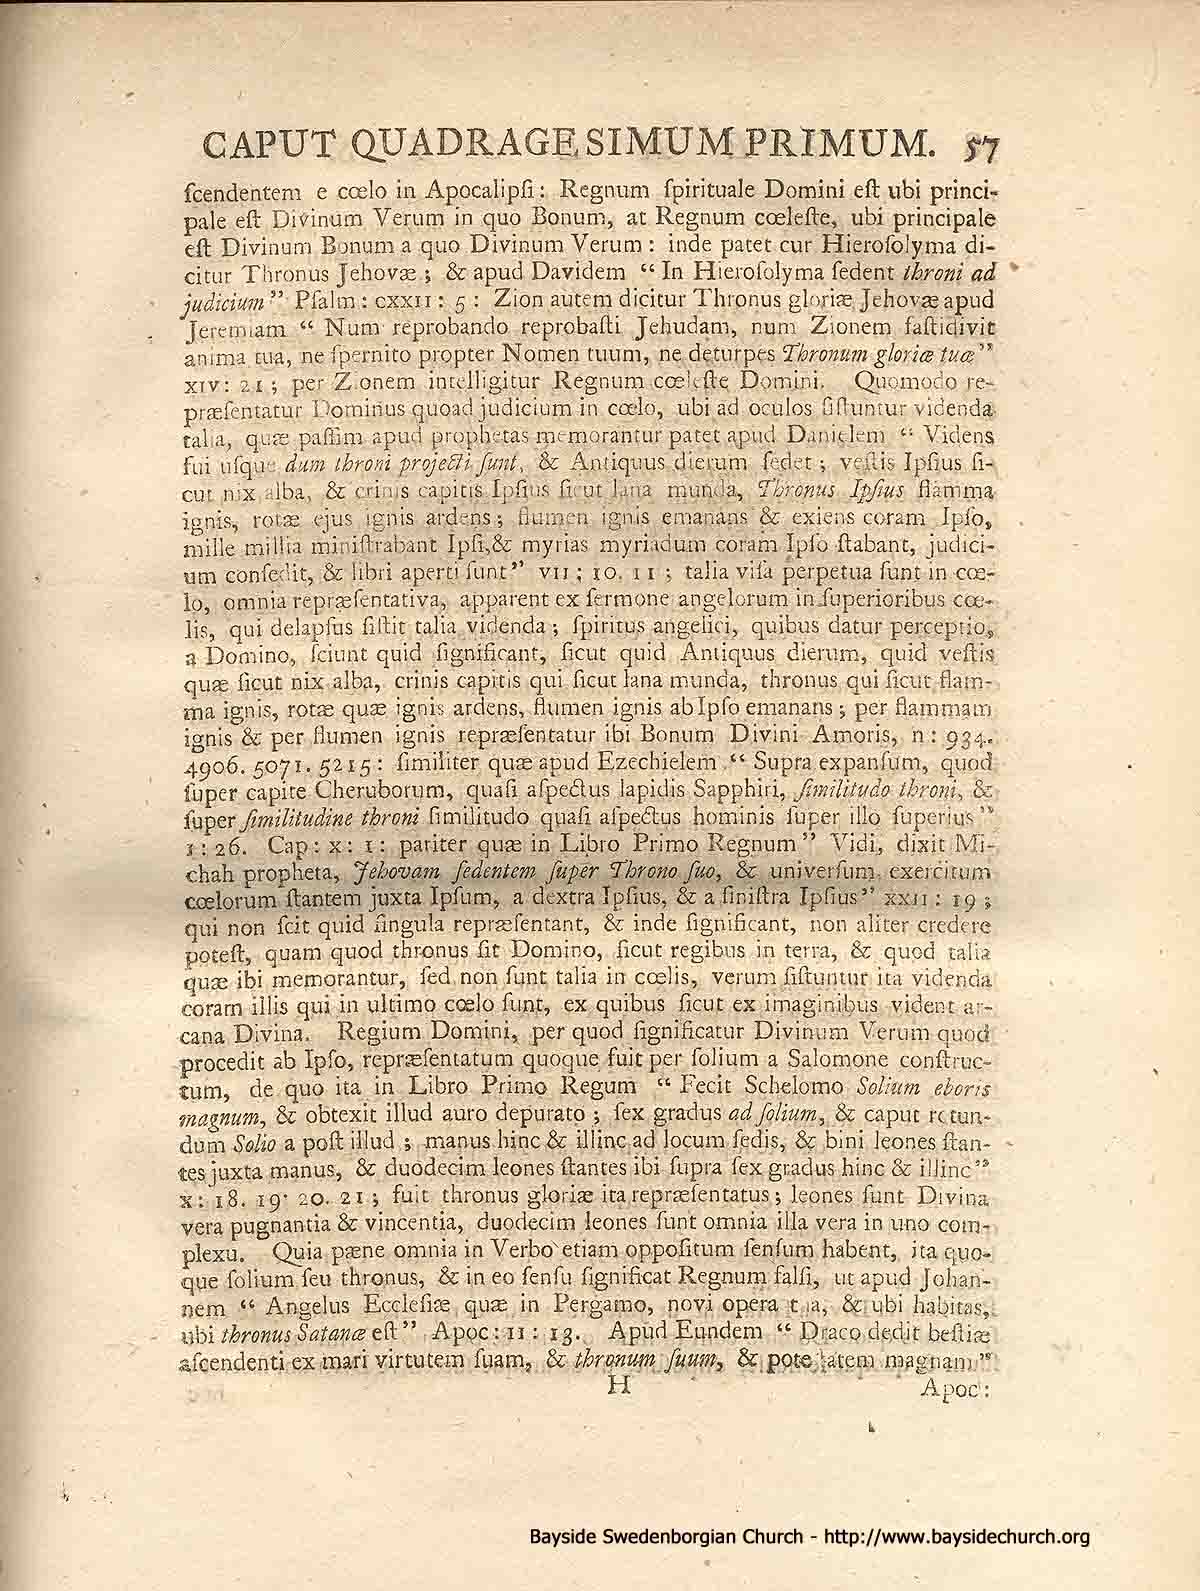 CAPUT QUADRAGESIMUM PRIMUM. 57
ſcendentem e cœlo in Apocalipſi: Regnum ſpirituale Domini eſt ubi princi-
pale eſt Divinum Verum in quo Bonum, at Regnum cœleſte, ubi principale
eſt Divinum Bonum a quo Divinum Verum: inde patet cur Hieroſolyma di-
citur Thronus Jehovæ; & apud Davidem “ In Hieroſolyma ſedent throni ad
judicium” Pſalm: CXXII: 5: Zion autem dicitur Thronus gloriæ Jehovæ apud
Jeremiam “ Num reprobando reprobaſti Jehudam, num Zionem faſtidivit
anima tua, ne ſpernito propter Nomen tuum, ne deturpes Thronum gloriæ tuæ”
XIV: 21; per Zionem intelligitur Regnum cœleſte Domini. Quomodo re-
præſentatur Dominus quoad judicium in cœlo, ubi ad oculos ſiſtuntur videnda
talia, quæ paſſim apud prophetas memorantur patet apud Danielem “ Videns
fui uſque dum throni projecti ſunt, & Antiquus dierum ſedet; veſtis Ipſius ſi-
cut nix alba, & crinis capitis Ipſius ſicut lana munda, Thronus Ipſius flamma
ignis, rotæ ejus ignis ardens; flumen ignis emanans & exiens coram Ipſo,
mille millia miniſtrabant Ipſi,& myrias myriadum coram Ipſo ſtabant, judici-
um conſedit, & libri aperti ſunt” VII; 10. 11; talia viſa perpetua ſunt in cœ-
lo, omnia repræſentativa, apparent ex ſermone angelorum in ſuperioribus cœ-
lis, qui delapſus ſiſtit talia videnda; ſpiritus angelici, quibus datur perceptio,
a Domino, ſciunt quid ſignificant, ſicut quid Antiquus dierum, quid veſtis
quæ ſicut nix alba, crinis capitis qui ſicut lana munda, thronus qui ſicut flam-
ma ignis, rotæ quæ ignis ardens, flumen ignis ab Ipſo emanans; per flammam
ignis & per flumen ignis repræſentatur ibi Bonum Divini Amoris, n: 934.
4906. 5071. 5215: ſimiliter quæ apud Ezechielem “ Supra expanſum, quod
ſuper capite Cheruborum, quaſi aſpectus lapidis Sapphiri, ſimilitudo throni, &
ſuper ſimilitudine throni ſimilitudo quaſi aſpectus hominis ſuper illo ſuperius”
1: 26. Cap: X: 1: pariter quæ in Libro Primo Regnum” Vidi, dixit Mi-
chah propheta, Jehovam ſedentem ſuper Throno ſuo, & univerſum exercitum
cœlorum ſtantem juxta Ipſum, a dextra Ipſius, & a ſiniſtra Ipſius” XXII: 19;
qui non ſcit quid ſingula repræſentant, & inde ſignificant, non aliter credere
poteſt, quam quod thronus ſit Domino, ſicut regibus in terra, & quod talia
quæ ibi memorantur, ſed non ſunt talia in cœlis, verum ſiſtuntur ita videnda
coram illis qui in ultimo cœlo ſunt, ex quibus ſicut ex imaginibus vident ar-
cana Divina. Regium Domini, per quod ſignificatur Divinum Verum quod
procedit ab Ipſo, repræſentatum quoque fuit per ſolium a Salomone conſtruc-
tum, de quo ita in Libro Primo Regum “ Fecit Schelomo Solium eboris
magnum, & obtexit illud auro depurato; ſex gradus ad ſolium, & caput rotun-
dum Solio a poſt illud; manus hinc & illinc ad locum ſedis, & bini leones ſtan-
tes juxta manus, & duodecim leones ſtantes ibi ſupra ſex gradus hinc & illinc”
X: 18. 19. 20. 21; fuit thronus gloriæ ita repræſentatus; leones ſunt Divina
vera pugnantia & vincentia, duodecim leones ſunt omnia illa vera in uno com-
plexu. Quia pæne omnia in Verbo etiam oppoſitum ſenſum habent, ita quo-
que ſolium ſeu thronus, & in eo ſenſu ſignificat Regnum falſi, ut apud Johan-
nem “ Angelus Eccleſiæ quæ in Pergamo, novi opera tua, & ubi habitas,
ubi thronus Satanæ eſt” Apoc: II: 13. Apud Eundem “ Draco dedit beſtiæ
aſcendenti ex mari virtutem ſuam, & thronum ſuum, & poteſtatem magnam”
H Apoc:
Bayside Swedenborgian Church - http://www.baysidechurch.org